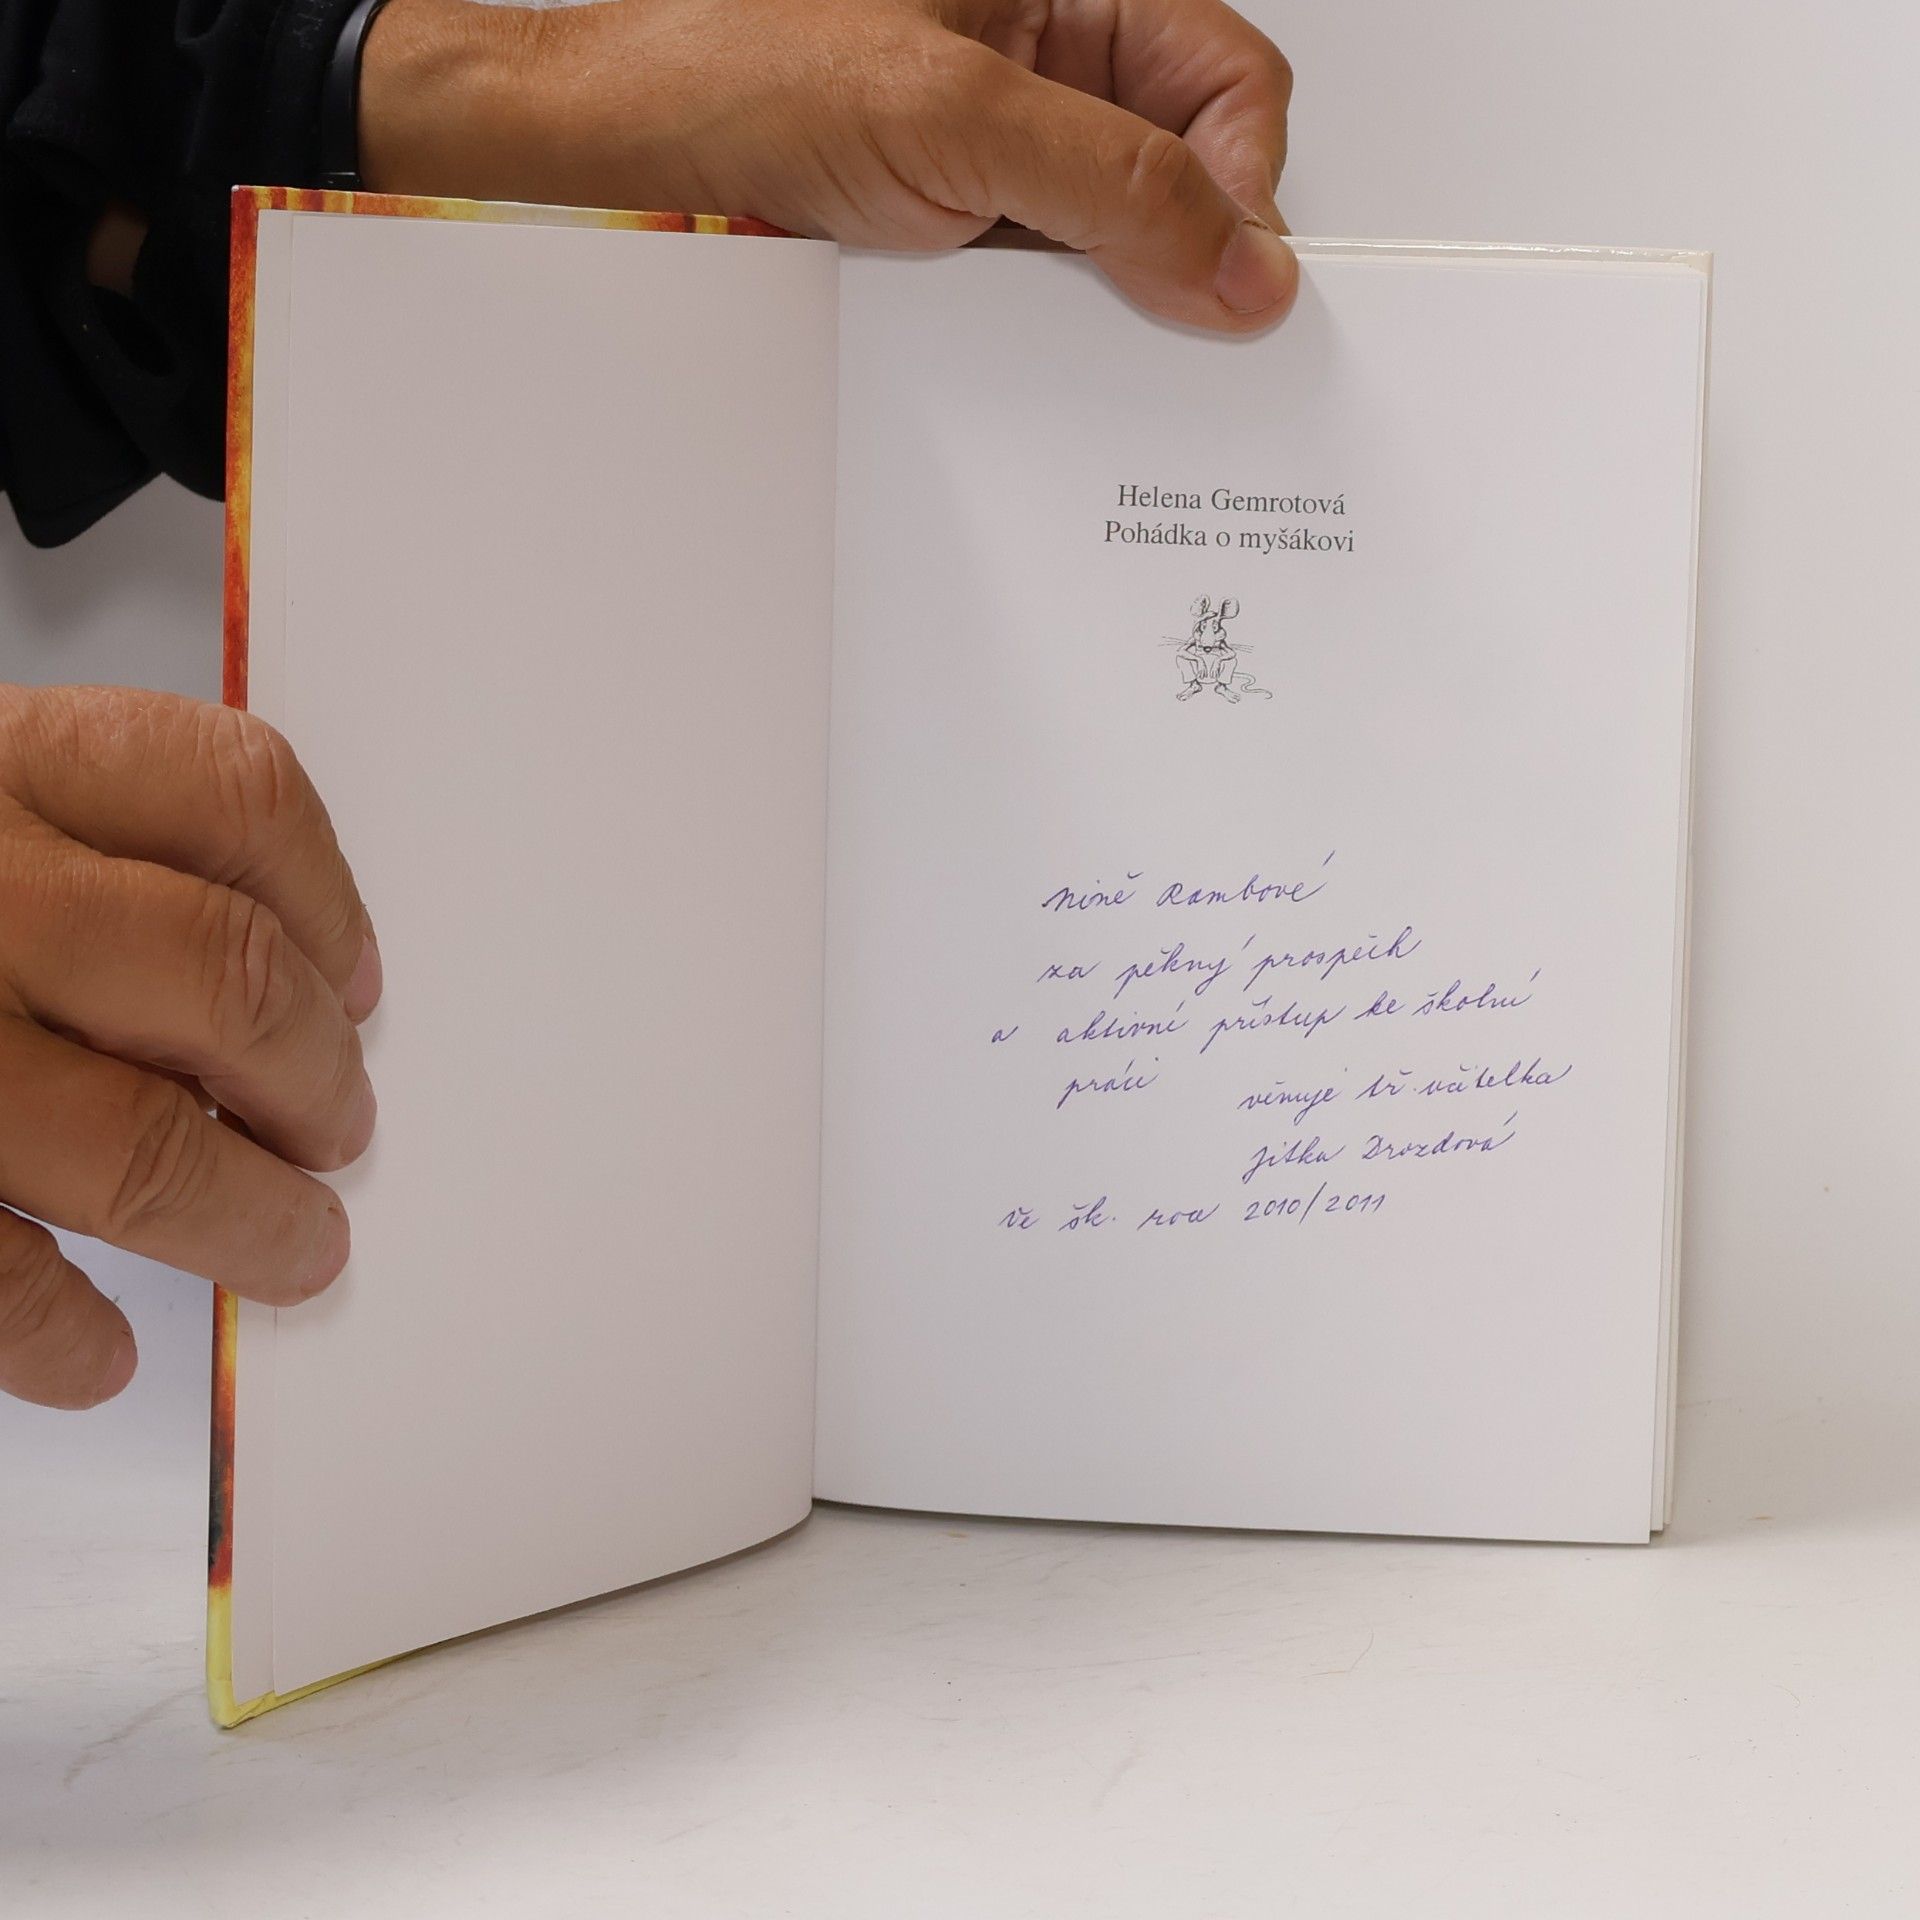 Helena Gemrotová
Pohádka o myšákovi
Nině Rambové
za pěkný prospěch
a aktivní přístup ke školní
práci
věnuje tř. učitelka
Jitka Drozdová
ve šk. roce 2010/2011